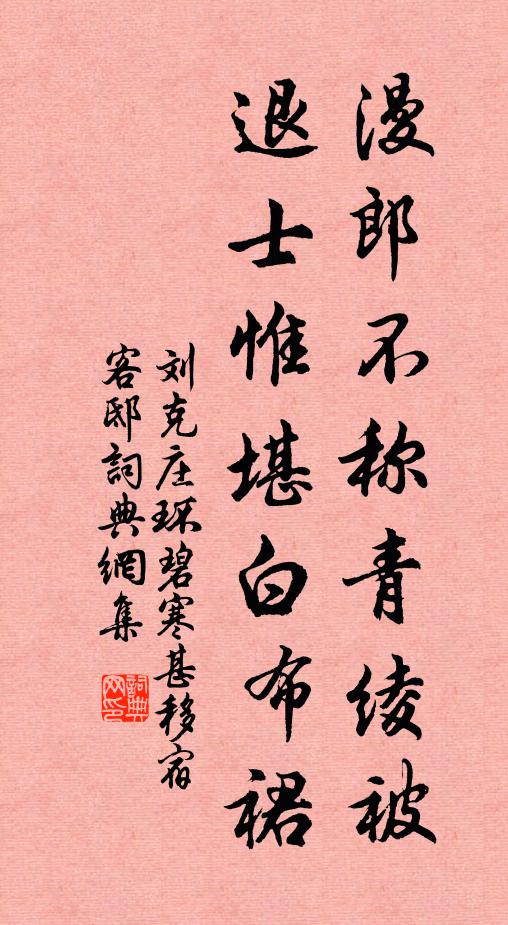 漫郎不称青绫被
退士惟堪白布裙
刘克庄环碧寒甚移宿
客邸詞典網集
詞典网印